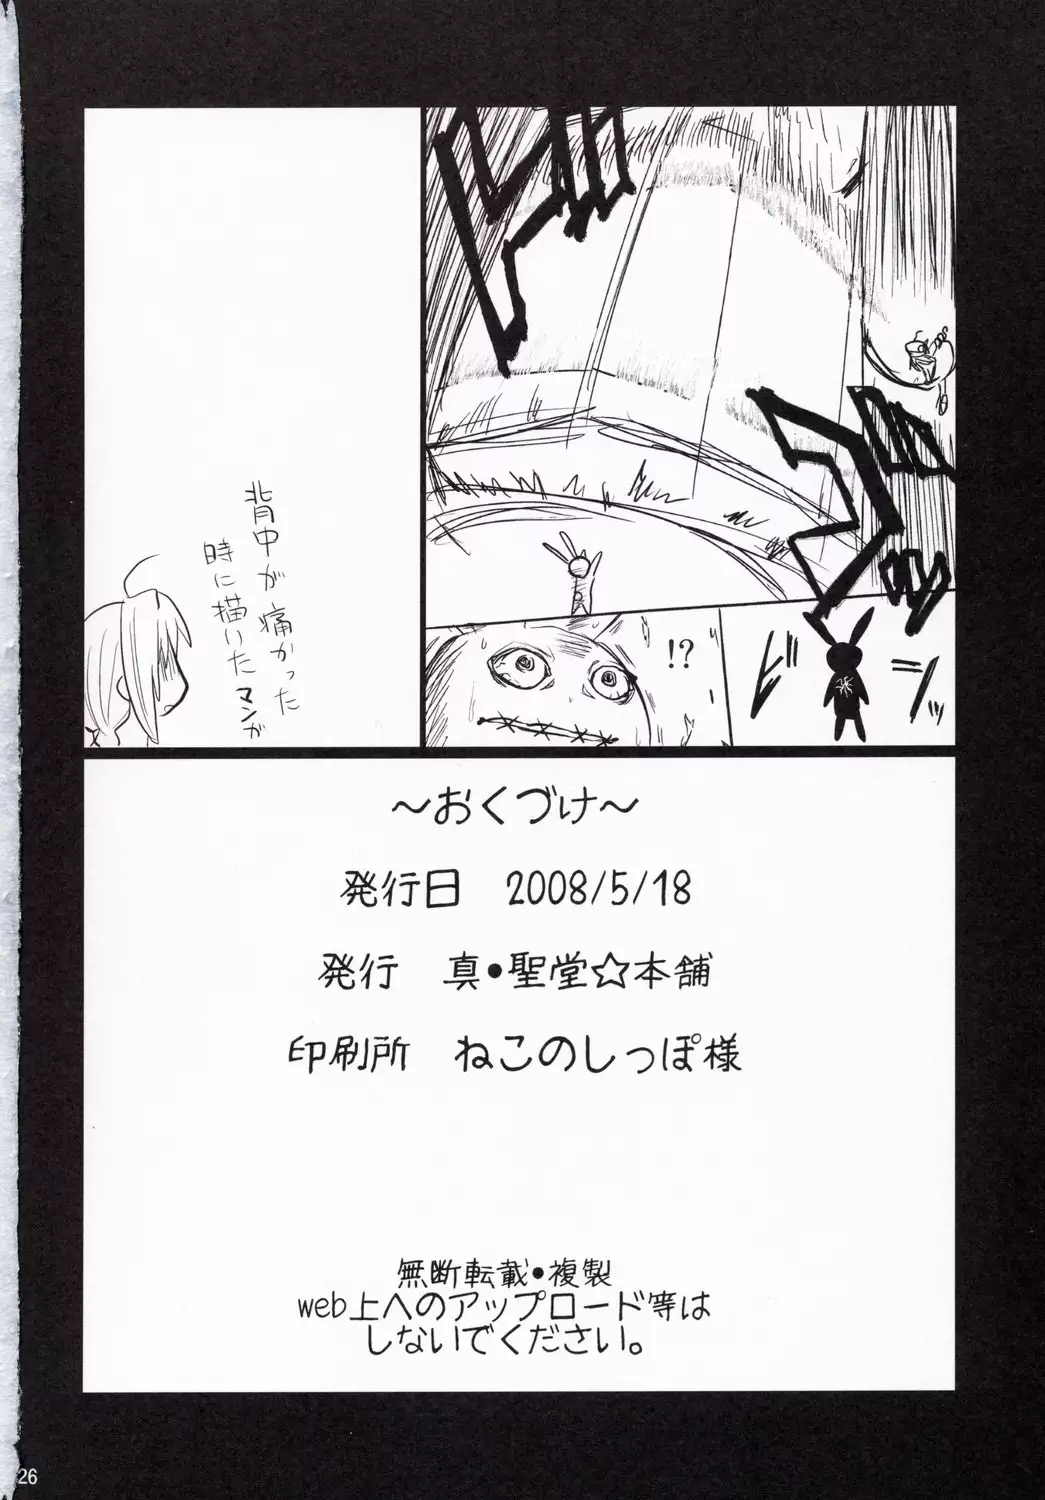 ドドド
ゴゴゴ
!?
ビ
ニッ
背中が痛かった
時に描いたマンガ
～おくづけ～
発行日 2008/5/18
発行 真・聖堂☆本舗
印刷所 ねこのしっぽ様
無断転載・複製
web上へのアップロード等は
しないでください。
26